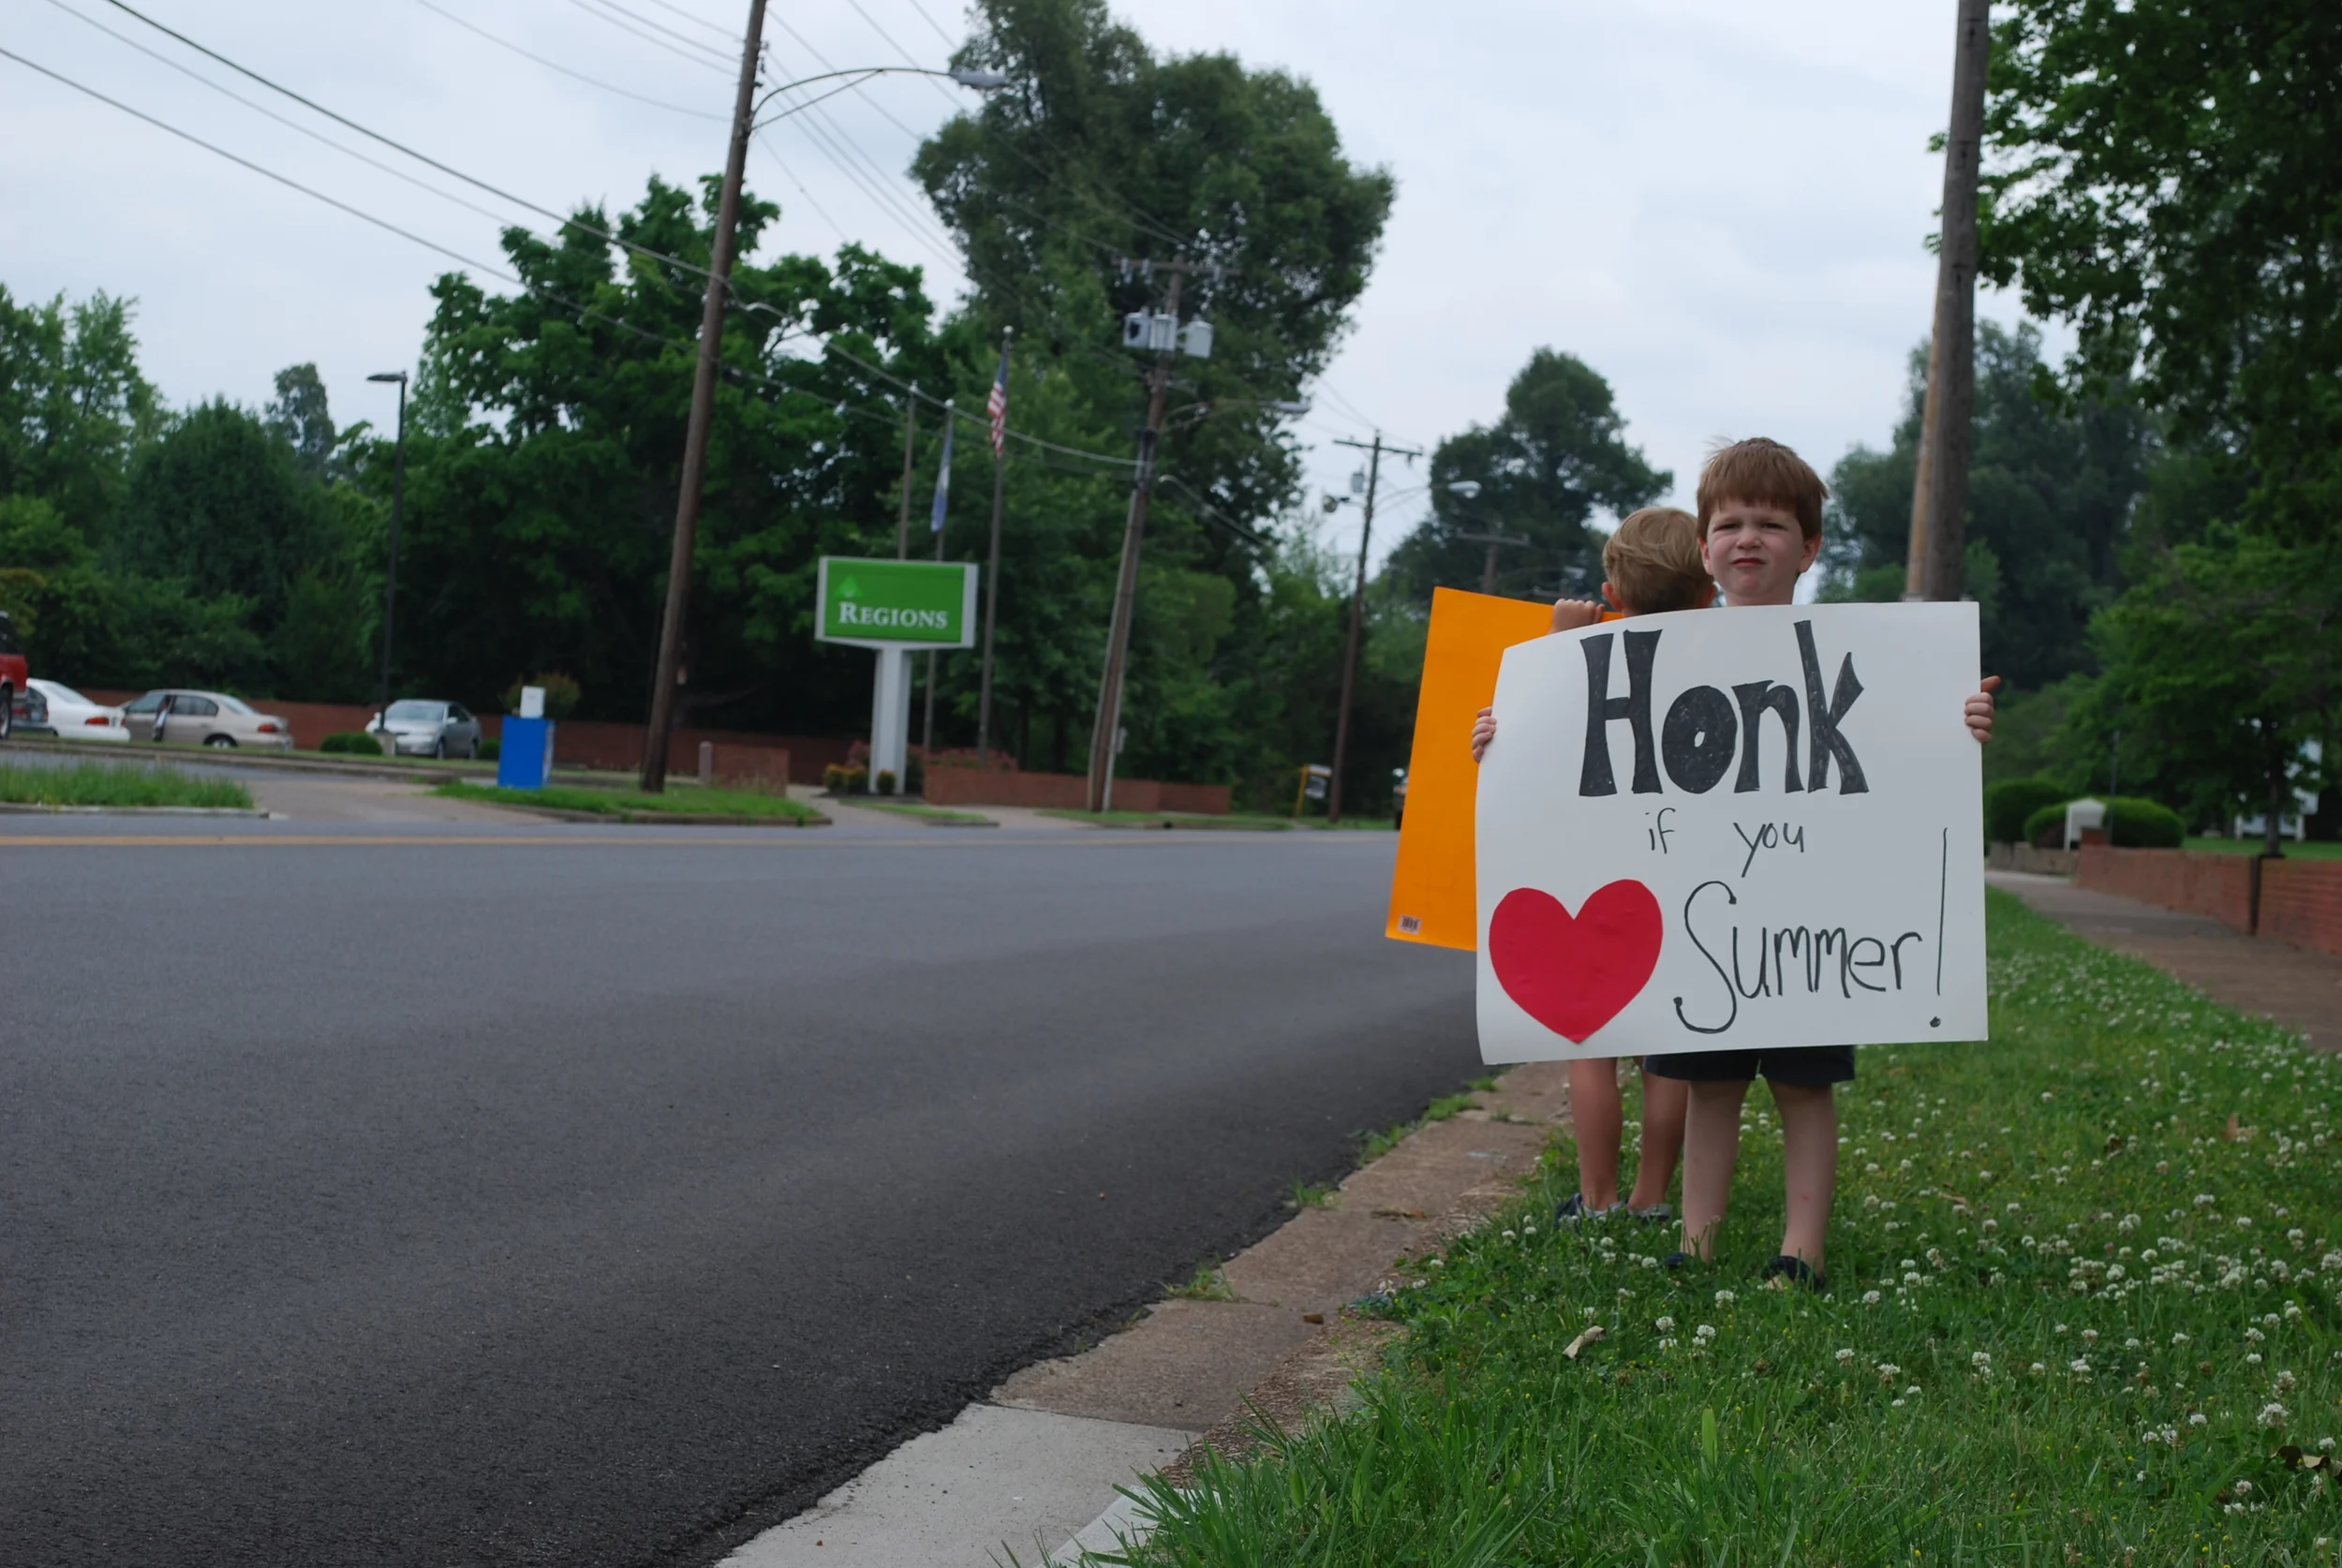 REGIONS
Honk
if you
Summer!